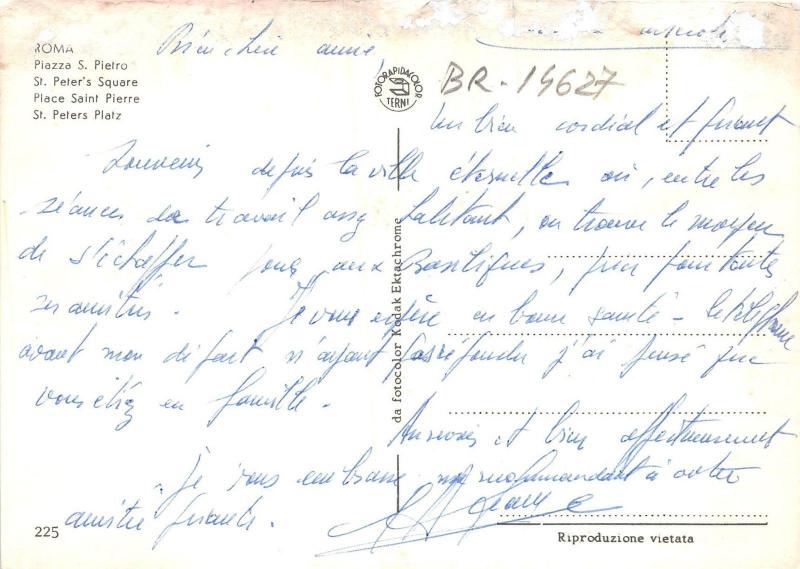 ROMA
Piazza S. Pietro
St. Peter's Square
Place Saint Pierre
St. Peters Platz
Bien chère amie,
FOTORAPIDACOLOR
TERNI
BR-19627
Un bien cordial et fervent
Souvenir depuis la ville éternelle où, entre les
séances de travail assez, on trouve le moyen
de s'échapper jusqu'aux Basiliques, prier pour toutes
ses amitiés. Je vous espère en bonne santé - le téléphone
avant mon départ n'ayant pas répondu j'ai pensé que
vous étiez en famille.
Au revoir et bien affectueusement
je vous embrasse me recommandant à votre
amitié fervente.
da fotocolor Kodak Ektachrome
225
Riproduzione vietata